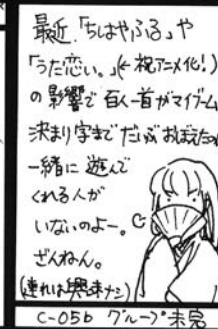 最近「ちはやふる」や
「うた恋い。」(←祝アニメ化!)
の影響で 百人一首がマイブーム
決まり字まで だいぶ おぼえたのに
一緒に 遊んで
くれる人が
いないのよー。
ざんねん。
(連れは興味ナシ)
C-05b グループ未完